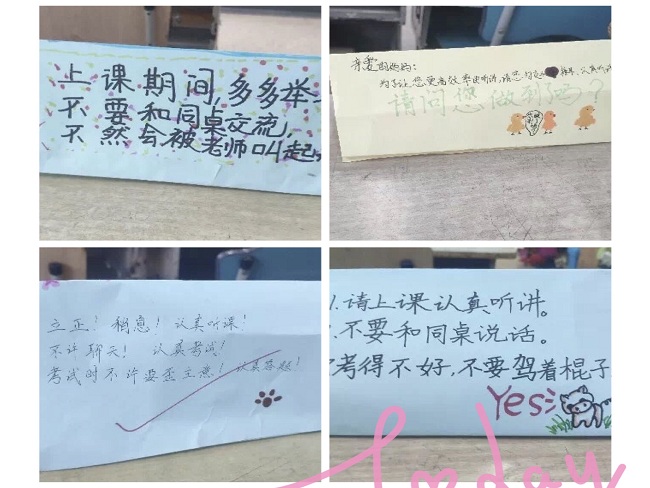 上课期间,多多举
不要和同桌交流,
不然会被老师叫起
亲爱的妈妈:
为了让您更高效率更听讲,请您
请问您做到吗?
立正!稍息!认真听课!
不许聊天!认真考试!
考试时不许耍歪主意!认真答题!
1.请上课认真听讲。
.不要和同桌说话。
考得不好,不要驾着棍子
Yes
Today